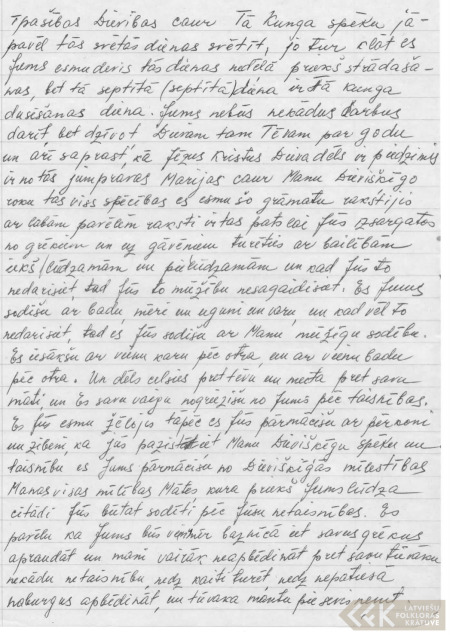 īpašības Dievības caur Tā Kunga spēku jā-
pavēl tās svētās dienas svētīt, jo tur klāt es
Jums esmu devis tās dienas nedēļā priekš strādāša-
nas, bet tā septītā (septītā) diena ir tā kunga
dusēšanas diena. Jums nebūs nekādus darbus
darīt, bet dzīvot Dievam tam Tēvam par godu
un arī saprast, kā Jēzus Kristus Dieva dēls ir piedzimis
ir no tās jumpravas Marijas caur Manu Dievišķīgo
roku tas viss spēcības es esmu šo grāmatu rakstījis
ar labām pavēlēm raksti virtas pats lai jūs izsargātos
no grēkiem un uz gavēņiem turēties ar bailībām
iekš lūdzamām un pielūdzamām un kad Jūs to
nedarīsiet, tad Jūs to mūžību nesagaidīsat. Es Jums
sodīšu ar badu, mēri un uguni un varu, un kad vēl to
nedarīsit, tad es Jūs sodīšu ar Manu, mūžīgu sodību.
Es iesākšu ar vienu karu pēc otra, un ar vienu badu
pēc otra. Un dēls celsies pret tēvu un meita pret savu
māti, un Es savu vaigu nogriezīšu no Jums pēc taisnības.
Es Jūs esmu žēlojis tapēc es Jūs pārmācīšu ar pērkoni
un zibeni, ka jūs pazīstat Manu Dievišķīgu spēku un
taisnību es Jums pārmācīšu no Dievišķīgās mīlestības
Manas visas mīlības Mātes kura priekš Jums lūdza
citādi Jūs būtat sodīti pēc Jūsu netaisnības. Es
pavēlu ka Jums būs vienmēr baznīcā iet savus grēkus
apraudāt un mani vairāk neapbēdināt pret savu tuvāku
nekādu netaisnību, nedz kaiti turēt, nedz nepatiesā
naburgus apbēdināt, un tuvāka mantu pie sevis ņemt.
LATVIEŠU
FOLKLORAS
KRĀTUVE